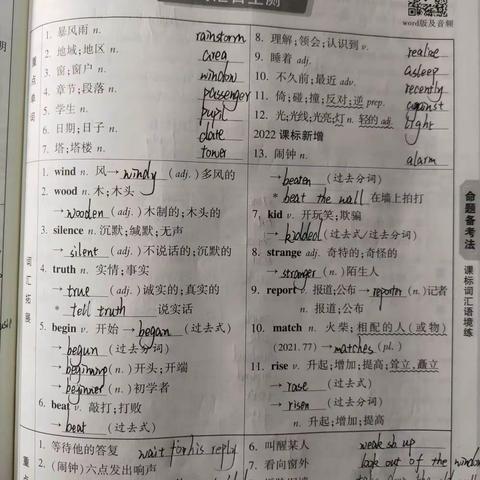 word版及音频
重点单词
1. 暴风雨 n. rainstorm
2. 地域;地区 n. area
3. 窗;窗户 n. window
4. 章节;段落 n. passenger
5. 学生 n. pupil
6. 日期;日子 n. date
7. 塔;塔楼 n. tower
8. 理解;领会;认识到 v. realize
9. 睡着 adj. asleep
10. 不久前;最近 adv. recently
11. 倚;碰;撞;反对;逆 prep. against
12. 光;光线;光亮;灯 n. 轻的 adj. light
2022 课标新增
13. 闹钟 n. alarm
词汇拓展
1. wind n. 风→ windy (adj.) 多风的
2. wood n. 木;木头
→ wooden (adj.) 木制的;木头的
3. silence n. 沉默;缄默;无声
→ silent (adj.) 不说话的;沉默的
4. truth n. 实情;事实
→ true (adj.) 诚实的;真实的
* tell truth 说实话
5. begin v. 开始→ began (过去式)
→ begun (过去分词)
→ (n.) 开头;开端
→ beginner (n.) 初学者
6. beat v. 敲打;打败
→ beat (过去式)
→ beaten (过去分词)
* beat the wall 在墙上拍打
7. kid v. 开玩笑;欺骗
→ kidded (过去式/过去分词)
8. strange adj. 奇特的;奇怪的
→ stranger (n.) 陌生人
9. report v. 报道;公布→ reporter (n.) 记者
n. 报道;公布
10. match n. 火柴;相配的人(或物)
(2021.77)→ matches (pl.)
11. rise v. 升起;增加;提高;耸立,矗立
→ rose (过去式)
→ risen (过去分词)
n. 升起;增加;提高
1. 等待他的答复 wait for his reply
2. (闹钟)六点发出响声
6. 叫醒某人
7. 看向窗外 look out of the window
命题备考法
课标词汇语境练